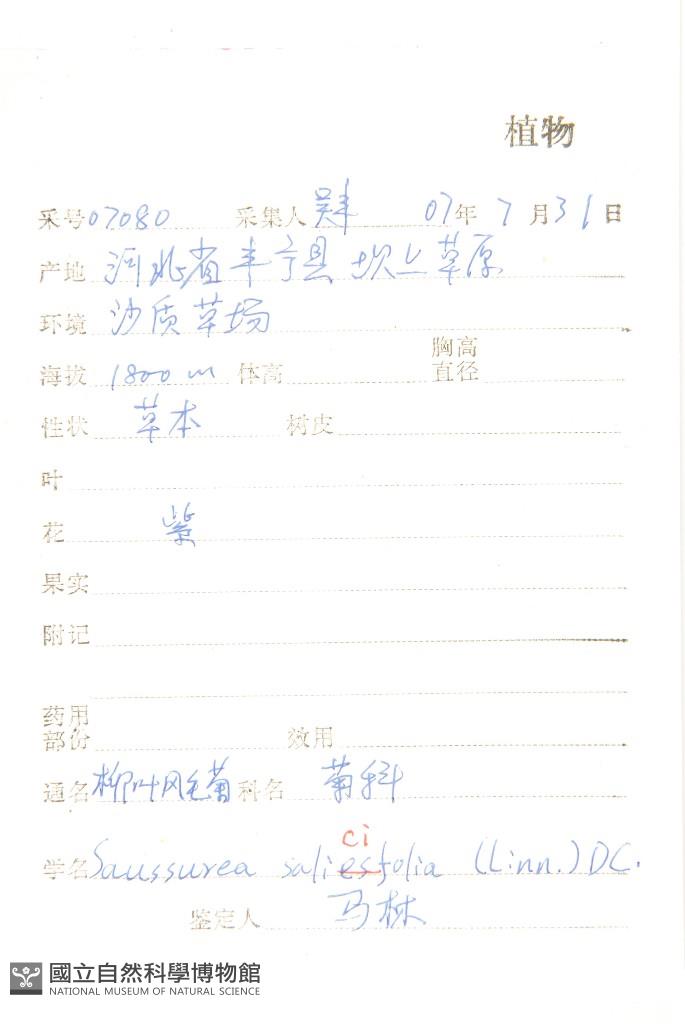 植物
采号 07080 采集人 吴丰 07年 7月31日
产地 河北省丰宁县坝上草原
环境 沙质草场
海拔 1800 m 体高 胸高直径
性状 草本 树皮
叶
花 紫
果实
附记
药用部份 效用
通名 柳叶风毛菊 科名 菊科
ci
学名 Saussurea saliesfolia (Linn.) DC.
鉴定人 马林
國立自然科學博物館
NATIONAL MUSEUM OF NATURAL SCIENCE